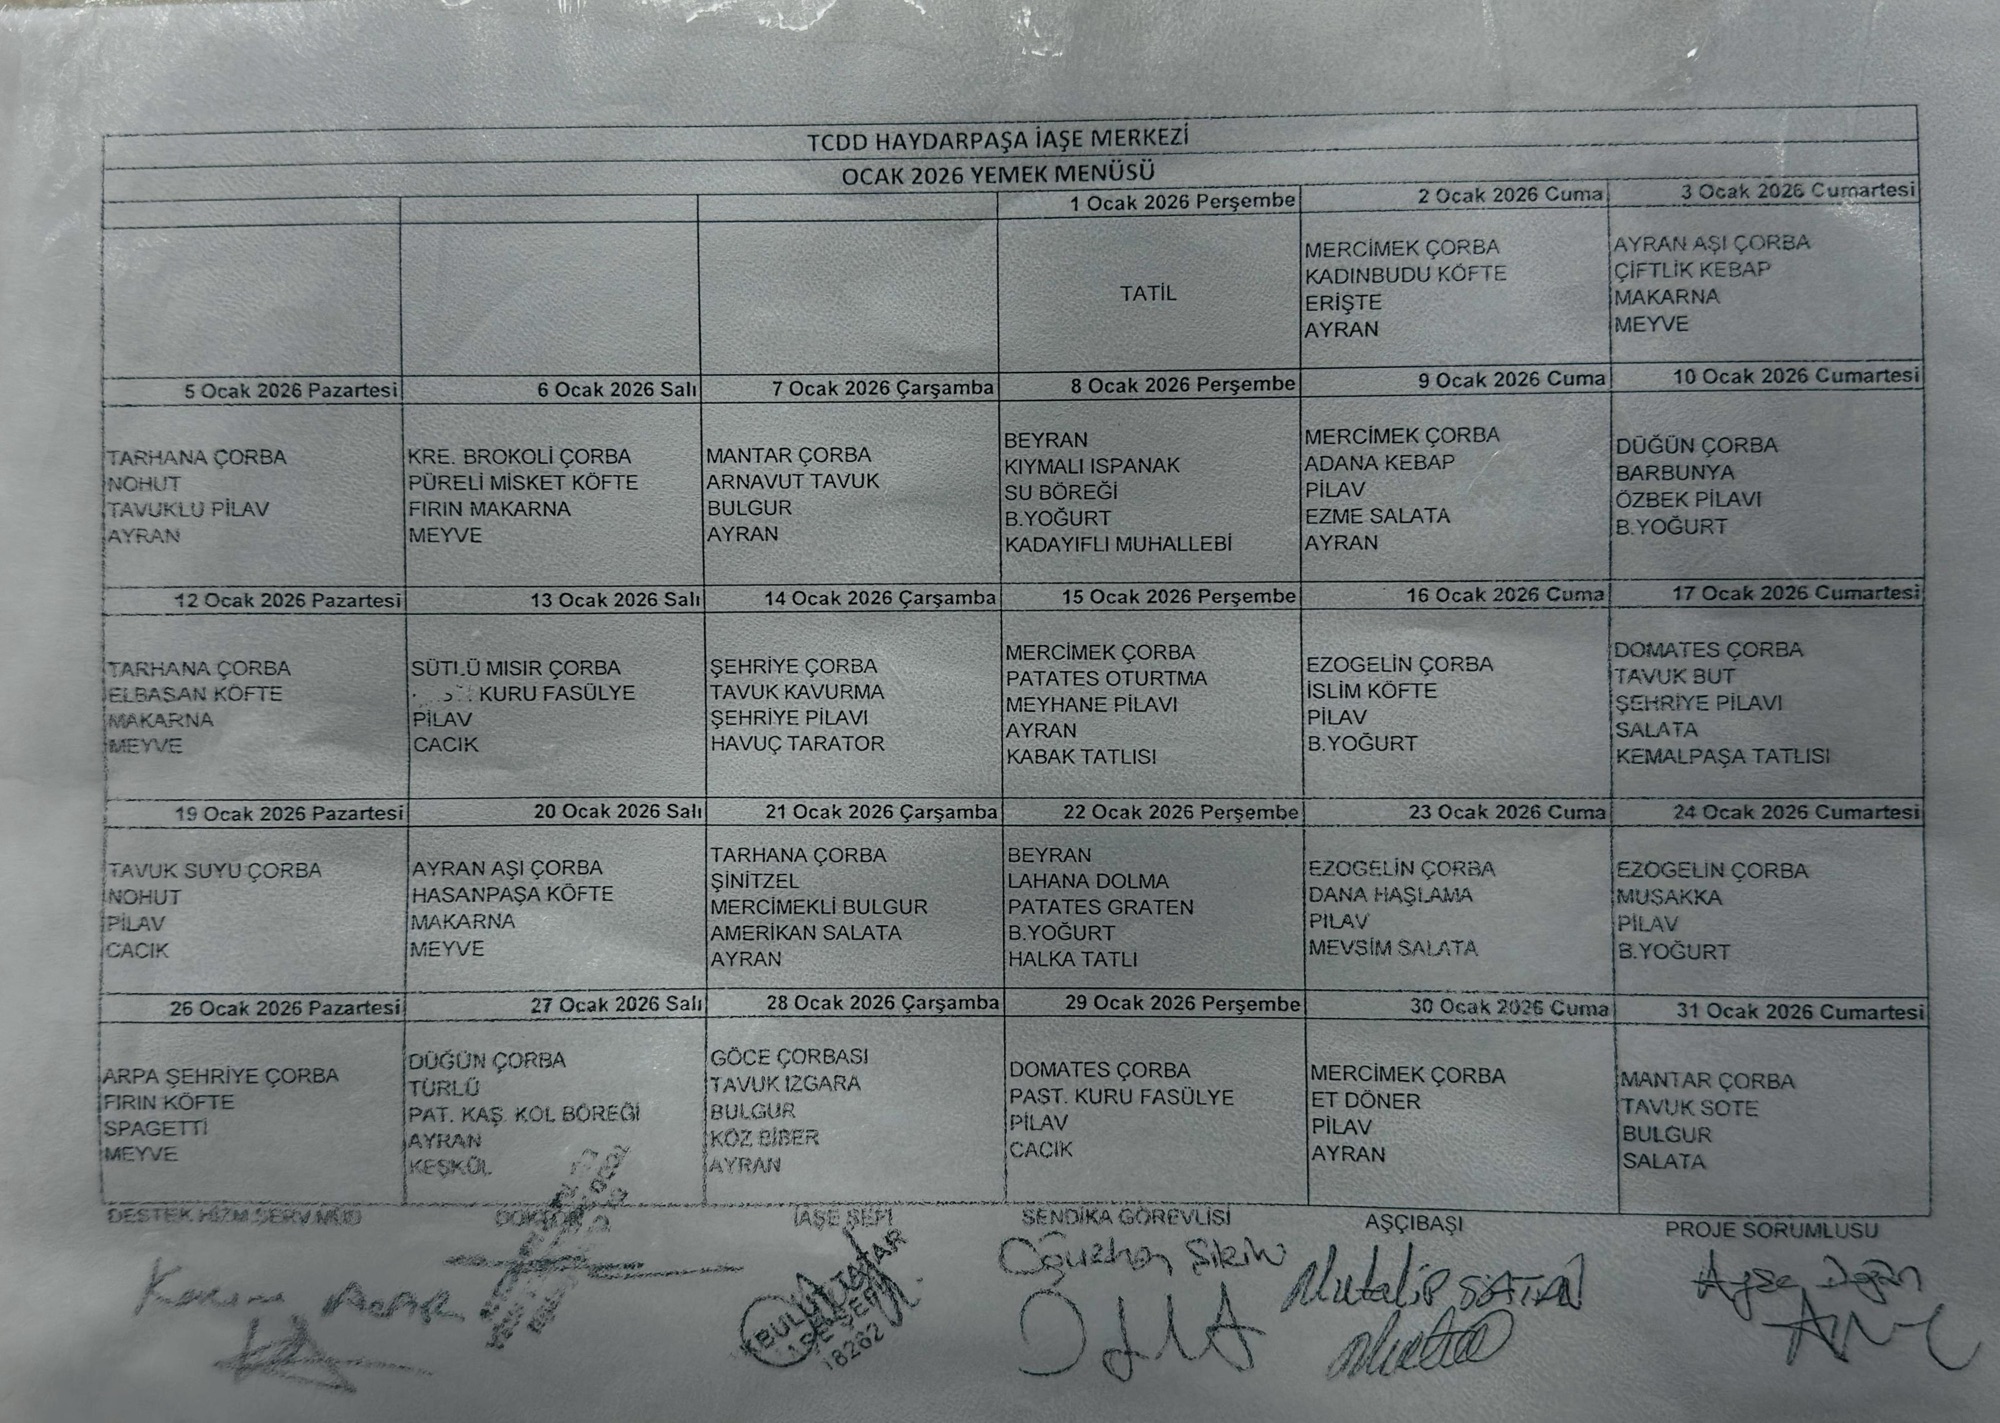 TCDD HAYDARPAŞA İAŞE MERKEZİ
OCAK 2026 YEMEK MENÜSÜ
1 Ocak 2026 Perşembe
2 Ocak 2026 Cuma
3 Ocak 2026 Cumartesi
TATİL
MERCİMEK ÇORBA
KADINBUDU KÖFTE
ERİŞTE
AYRAN
AYRAN AŞI ÇORBA
ÇİFTLİK KEBAP
MAKARNA
MEYVE
5 Ocak 2026 Pazartesi
6 Ocak 2026 Salı
7 Ocak 2026 Çarşamba
8 Ocak 2026 Perşembe
9 Ocak 2026 Cuma
10 Ocak 2026 Cumartesi
TARHANA ÇORBA
NOHUT
TAVUKLU PİLAV
AYRAN
KRE. BROKOLİ ÇORBA
PÜRELİ MİSKET KÖFTE
FIRIN MAKARNA
MEYVE
MANTAR ÇORBA
ARNAVUT TAVUK
BULGUR
AYRAN
BEYRAN
KIYMALI ISPANAK
SU BÖREĞİ
B.YOĞURT
KADAYIFLI MUHALLEBİ
MERCİMEK ÇORBA
ADANA KEBAP
PİLAV
EZME SALATA
AYRAN
DÜĞÜN ÇORBA
BARBUNYA
ÖZBEK PİLAVI
B.YOĞURT
12 Ocak 2026 Pazartesi
13 Ocak 2026 Salı
14 Ocak 2026 Çarşamba
15 Ocak 2026 Perşembe
16 Ocak 2026 Cuma
17 Ocak 2026 Cumartesi
TARHANA ÇORBA
ELBASAN KÖFTE
MAKARNA
MEYVE
SÜTLÜ MISIR ÇORBA
KURU FASÜLYE
PİLAV
CACIK
ŞEHRİYE ÇORBA
TAVUK KAVURMA
ŞEHRİYE PİLAVI
HAVUÇ TARATOR
MERCİMEK ÇORBA
PATATES OTURTMA
MEYHANE PİLAVI
AYRAN
KABAK TATLISI
EZOGELİN ÇORBA
İSLİM KÖFTE
PİLAV
B.YOĞURT
DOMATES ÇORBA
TAVUK BUT
ŞEHRİYE PİLAVI
SALATA
KEMALPAŞA TATLISI
19 Ocak 2026 Pazartesi
20 Ocak 2026 Salı
21 Ocak 2026 Çarşamba
22 Ocak 2026 Perşembe
23 Ocak 2026 Cuma
24 Ocak 2026 Cumartesi
TAVUK SUYU ÇORBA
NOHUT
PİLAV
CACIK
AYRAN AŞI ÇORBA
HASANPAŞA KÖFTE
MAKARNA
MEYVE
TARHANA ÇORBA
ŞİNİTZEL
MERCİMEKLİ BULGUR
AMERİKAN SALATA
AYRAN
BEYRAN
LAHANA DOLMA
PATATES GRATEN
B.YOĞURT
HALKA TATLI
EZOGELİN ÇORBA
DANA HAŞLAMA
PİLAV
MEVSİM SALATA
EZOGELİN ÇORBA
MUSAKKA
PİLAV
B.YOĞURT
26 Ocak 2026 Pazartesi
27 Ocak 2026 Salı
28 Ocak 2026 Çarşamba
29 Ocak 2026 Perşembe
30 Ocak 2026 Cuma
31 Ocak 2026 Cumartesi
ARPA ŞEHRİYE ÇORBA
FIRIN KÖFTE
SPAGETTİ
MEYVE
DÜĞÜN ÇORBA
TÜRLÜ
PAT. KAŞ. KOL BÖREĞİ
AYRAN
KEŞKÜL
GÖCE ÇORBASI
TAVUK IZGARA
BULGUR
KÖZ BİBER
AYRAN
DOMATES ÇORBA
PAST. KURU FASÜLYE
PİLAV
CACIK
MERCİMEK ÇORBA
ET DÖNER
PİLAV
AYRAN
MANTAR ÇORBA
TAVUK SOTE
BULGUR
SALATA
DESTEK HİZM.SERV.MÜD
DOKTOR
İAŞE ŞEFİ
SENDİKA GÖREVLİSİ
AŞÇIBAŞI
PROJE SORUMLUSU
BULUT TATAR
İAŞE ŞEFİ
18262
Oğuzhan
Mutalip SATAN
Ayşe